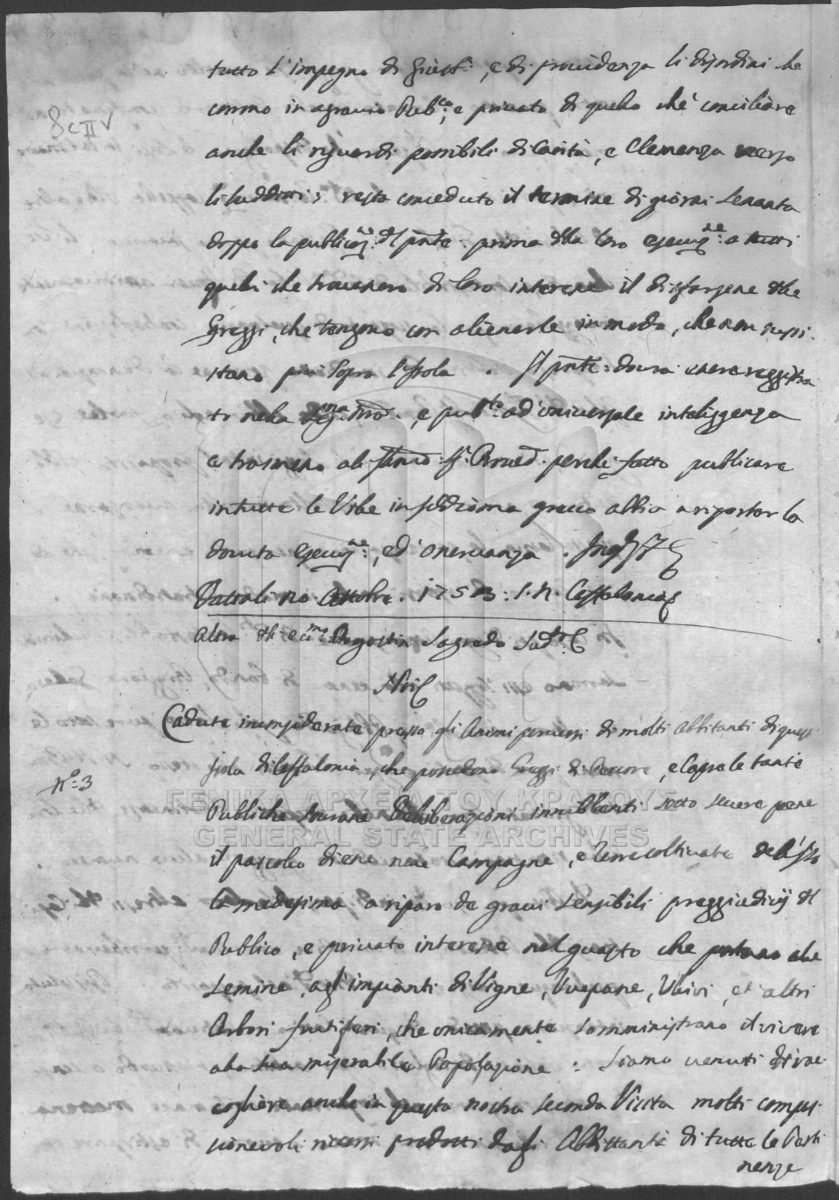 8 c II v
tutto l'impegno di Giust.ª, e di providenza li disordini che
corrono in agravio Pub.co, e privato di quelo che conciliare
anche li riguardi possibili di Carità, e Clemenza verso
li sudditi; resta conceduto il termine di giorni sessanta
doppo la publicaz.: del pnte. prima della loro esecuz.ne a tutti
queli che troveranno di loro interesse il disfarsene delle
Greggi, che tengono con alienarle in modo, che non sussi-
stano più sopra l'Isola. Il pnte: dovrà essere reggistra
to nela, e pub.to ad universale inteliggenza
e trasmesso al perche fatto publicare
in tutte le Vile in Iddioma greco abbia a riportar la
dovuta esecuz.ne:, ed'osservanza.
Ottobre. 1753: S.N. Ceffalonia
Altro Agostin Sagredo
Noi
Cadute inconsiderate presso gli Animi di molti Abbitanti di quest'
N.o: 3
Isola di Ceffalonia, che posedono Greggi di Pecore, e Capre le tante
ΓΕΝΙΚΑ ΑΡΧΕΙΑ ΤΟΥ ΚΡΑΤΟΥΣ
Publiche Sovrane Deliberazioni innibbenti sotto severe pene
GENERAL STATE ARCHIVES
il pascolo di esse nele Campagne, e Terre coltivate del'Iso
la medesima a riparo de gravi sensibili preggiudicij del
Publico, e privato interesse nel guasto che portano ale
Semine, agl'impianti di Vigne, Uvepasse, Ulivi, et altri
Arbori fruttiferi, che unicamente somministrano il vivere
ala sua miserabile Popolazione: Siamo venuti di rac
cogliere anche in questa nostra seconda Visita molti compas
sionevoli ricorsi prodotti dagl'Abbittanti di tutte le Perti
nenze